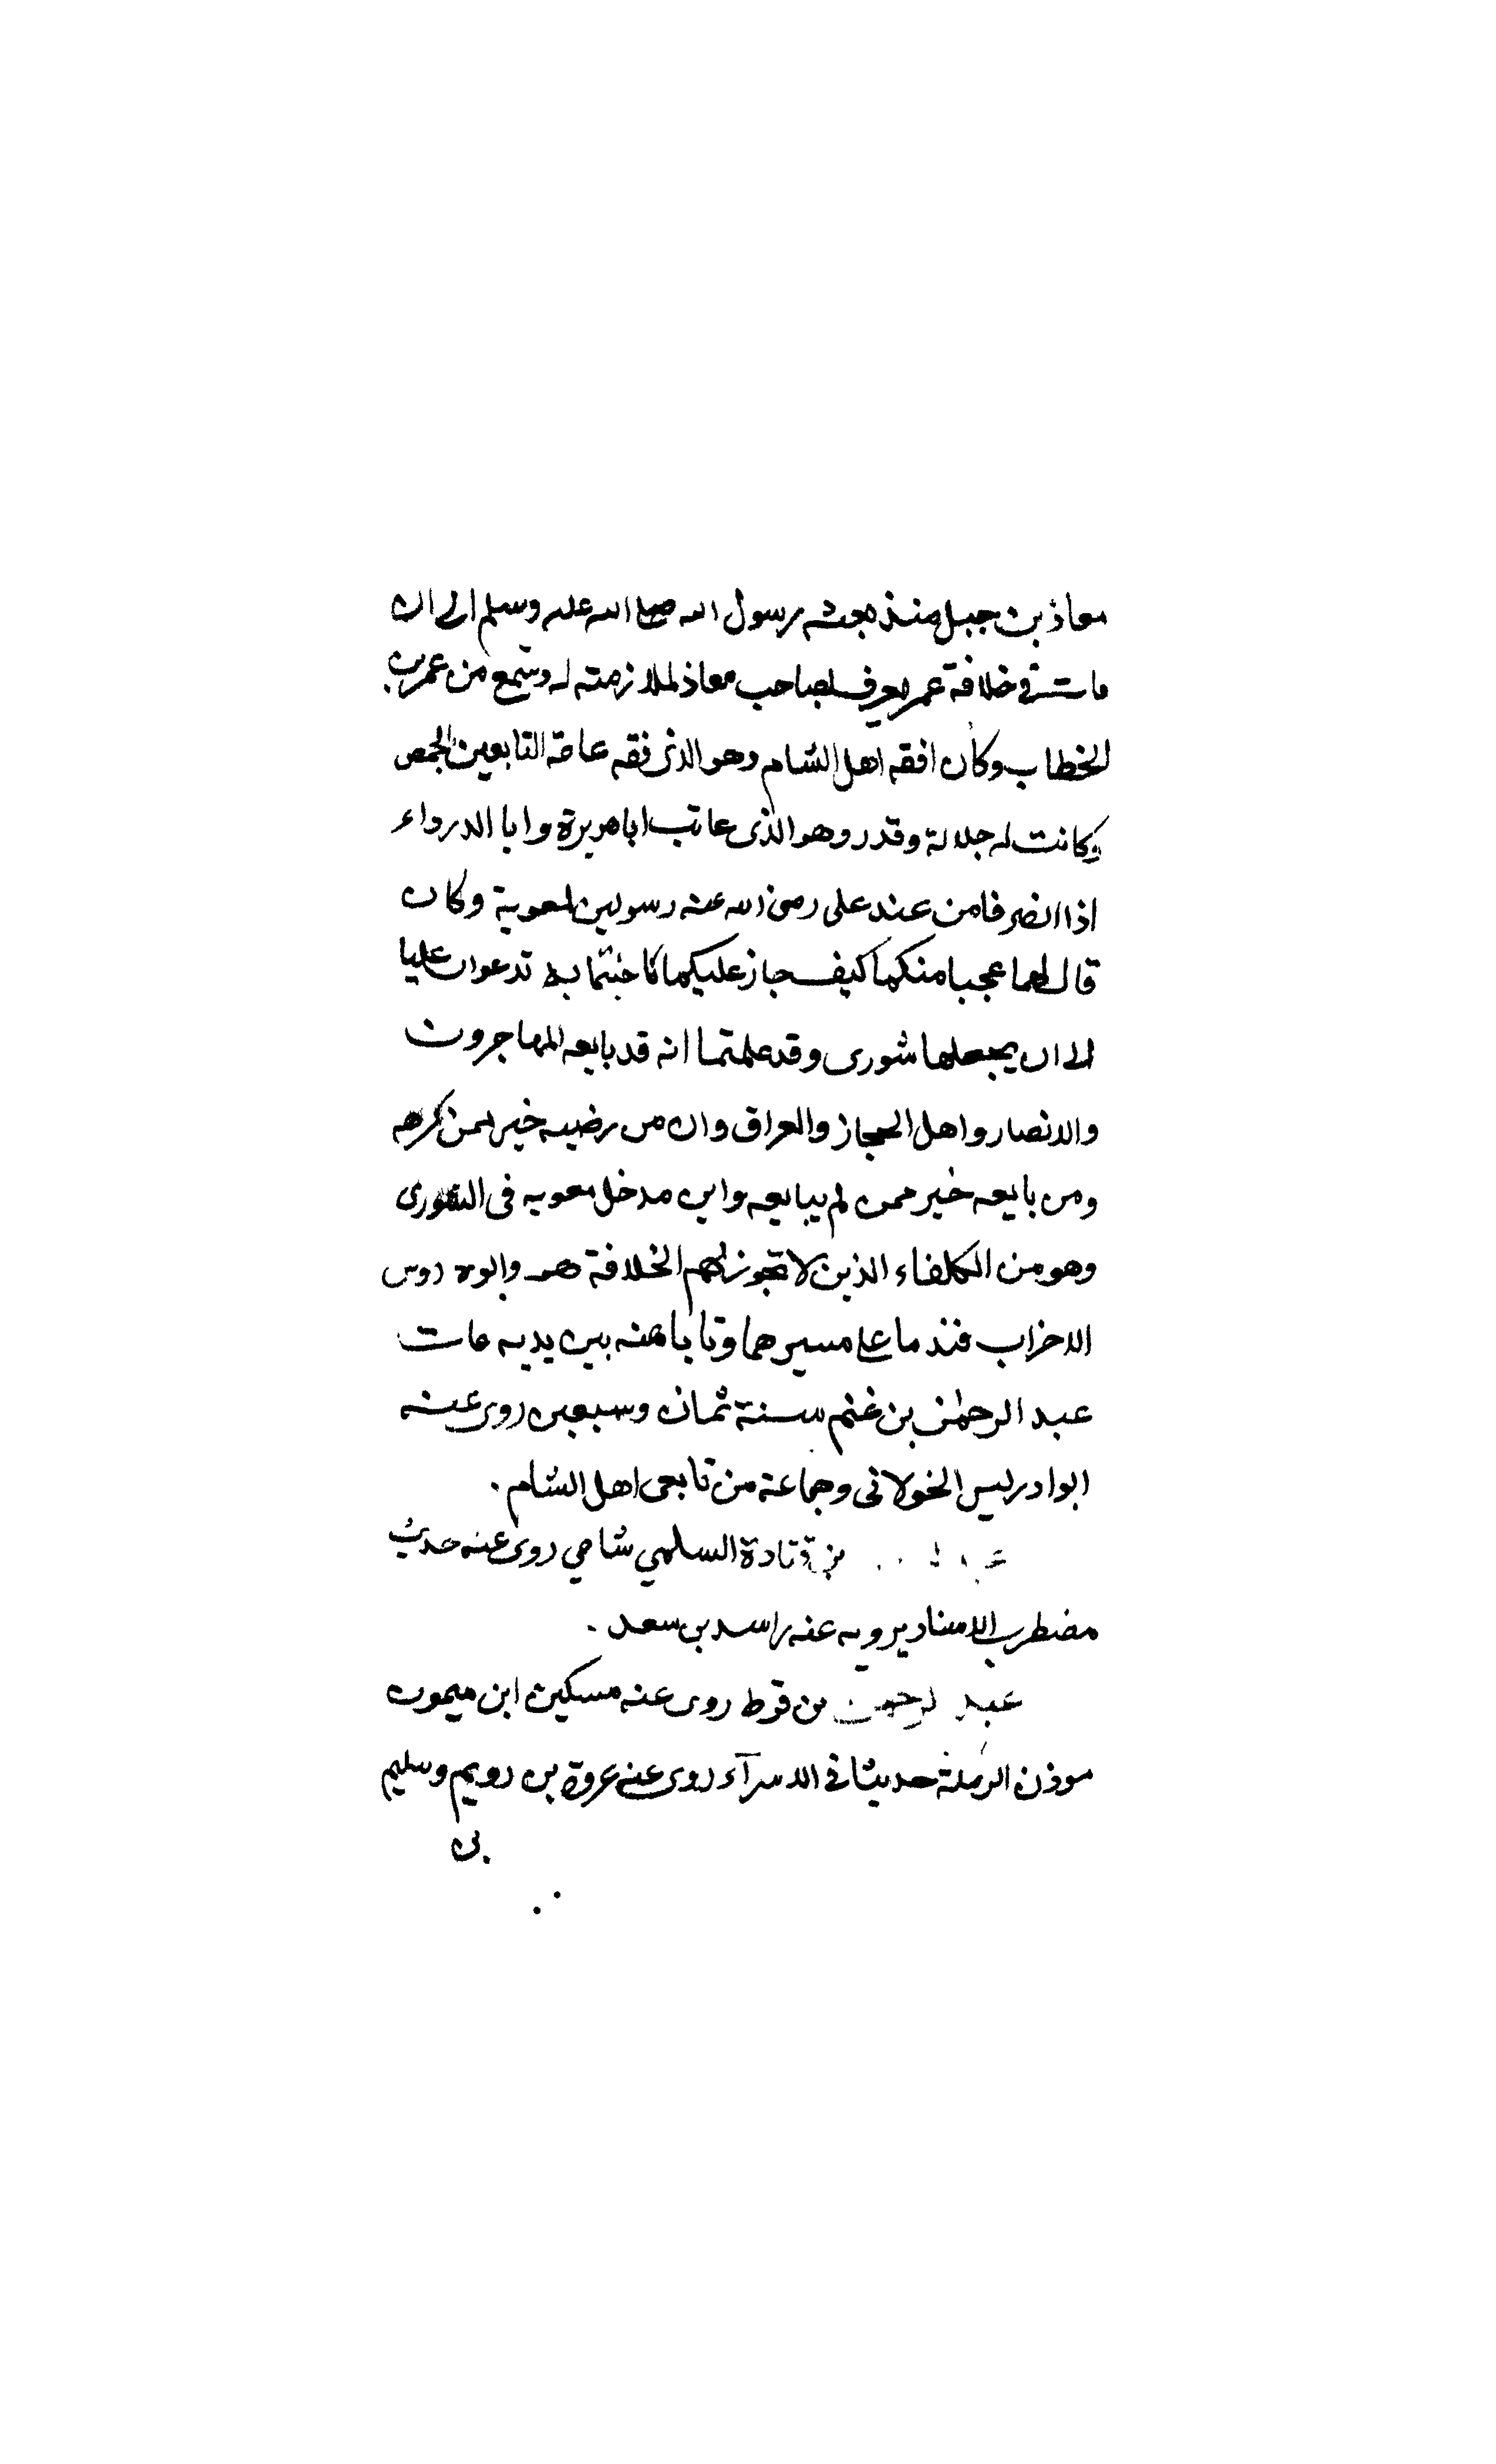 معاذ بن جبل منذ بعثه رسول الله صلى الله عليه وسلم الى ان
مات في خلافة عمر يعرف بصاحب معاذ لملازمته له وسمع من عمر بن
الخطاب وكان افقه اهل الشام وهو الذى فقه عامة التابعين
وكانت له جلالة وقدر وهو الذى عاتب ابا هريرة وابا الدرداء
اذا انصرفا من عند على رضى الله عنه رسولين لمعوية وكان
قال لهما عجبا منكما كيف جاز عليكما ما جئتما به تدعوان عليا
الى ان يجعلها شورى وقد علمتما انه قد بايعه المهاجرون
والانصار واهل الحجاز والعراق وان من رضيه خير ممن كرهه
ومن بايعه خير ممن لم يبايعه واين مدخل معويه فى الشورى
وهو من الطلقاء الذين لا تجوز لهم الخلافة هو وابوه روس
الاحزاب فندما على مسيرهما وتابا منه بين يديه مات
عبد الرحمٰن بن غنم سنة ثمان وسبعين روى عنه
ابو ادريس الخولانى وجماعة من تابعى اهل الشام .
بن قتادة السلمي شامي روى عنه حديث
مضطرب الاسناد يرويه عنه راشد بن سعد .
عبد الرحمن بن قرط روى عنه مسكين ابن ميمون
موذن الرملة حديثا فى الاسرآء روى عنه عروة بن رويم وسليم
بن